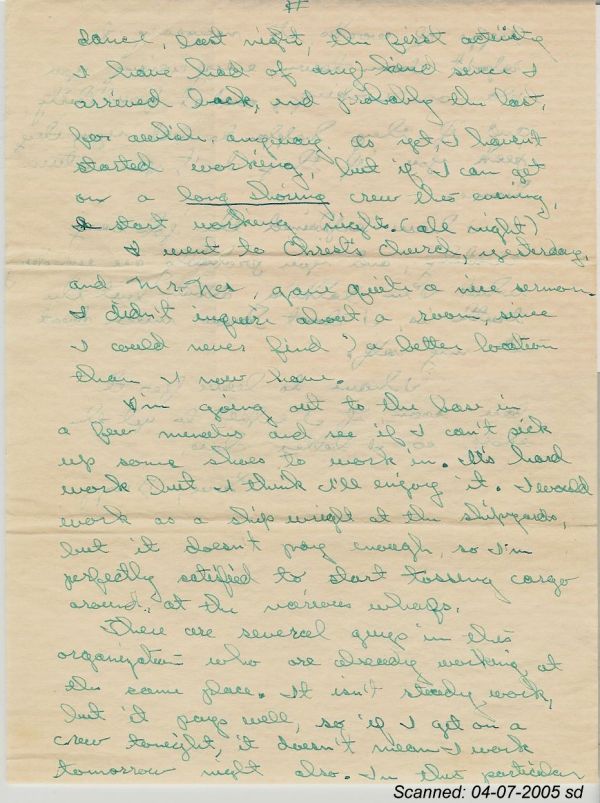 dance, last night, the first activity
I have had of any kind since I
arrived back, and probably the last,
for awhile anyway. As yet, I havent
started working, but if I can get
on a long shoring crew this evening,
I start working night. (all night)
I went to Christ's Church, yesterday,
and Mr. , gave quite a nice sermon.
I didn't inquire about a room, since
I could never find a better location
than I now have.
I'm going out to the base in
a few minutes and see if I can't pick
up some shoes to work in. It's hard
work but I think I'll enjoy it. I would
work as a ship wright at the shipyards,
but it doesn't pay enough, so I'm
perfectly satisfied to start tossing cargo
around, at the various wharfs.
There are several guys in this
organization who are already working at
the same place. It isn't steady work,
but it pays well, so if I get on a
crew tonight, it doesn't mean I work
tomorrow night also. In this particular
Scanned: 04-07-2005 sd